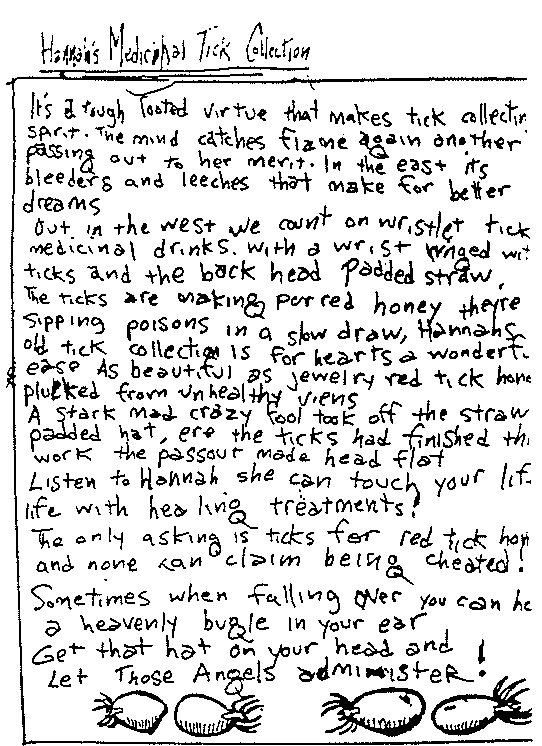 Hannah's Medicinal Tick Collection
It's a tough looted virtue that makes tick collectin
spirit. The mind catches flame again another
passing out to her merit. In the east its
bleeders and leeches that make for better
dreams
Out in the west we count on wristlet tick
medicinal drinks. With a wrist ringed wit
ticks and the back head padded straw,
The ticks are making per red honey theyre
sipping poisons in a slow draw, Hannahs
old tick collection is for hearts a wonderf
ease As beautiful as jewelry red tick hone
plucked from unhealthy viens
A stark mad crazy fool took off the straw
padded hat, ere the ticks had finished th
work the passour made head flat
Listen to Hannah she can touch your lif
life with healing treatments!
The only asking is ticks for red tick hon
and none can claim being cheated!
Sometimes when falling over you can he
a heavenly bugle in your ear
Get that hat on your head and
Let Those Angels administer!